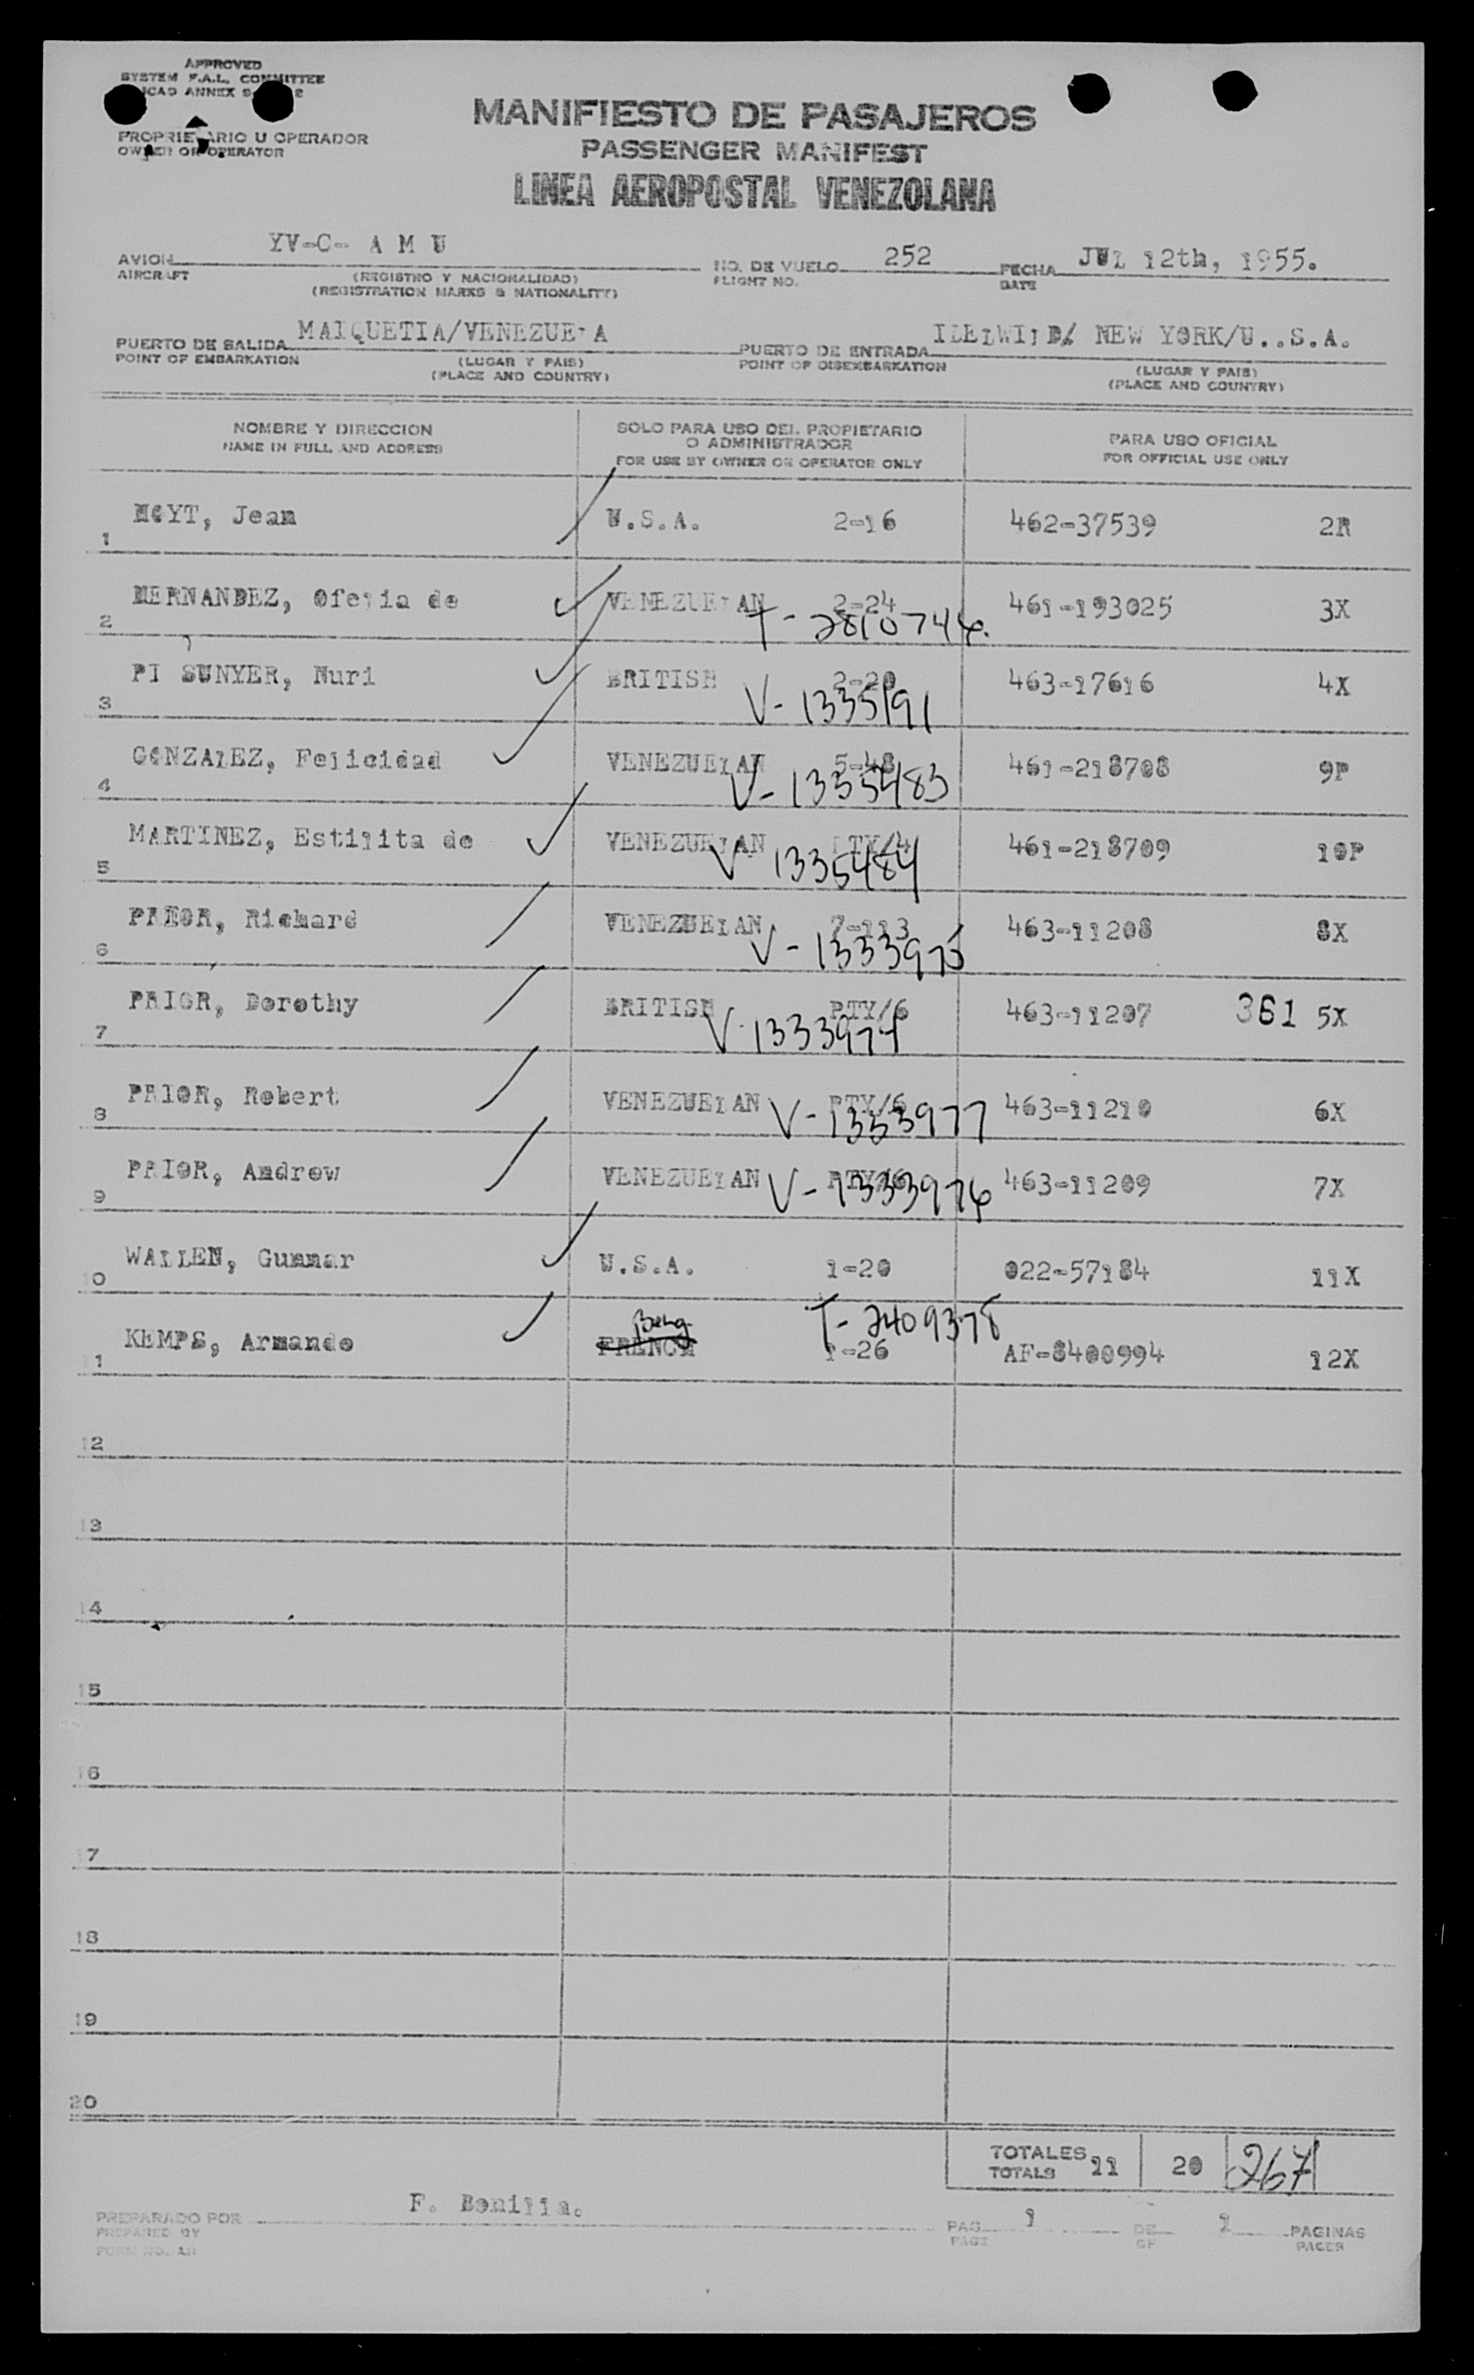 APPROVED
SYSTEM F.A.L. COMMITTEE
ICAO ANNEX 9
PROPRIETARIO U OPERADOR
OWNER OR OPERATOR
MANIFIESTO DE PASAJEROS
PASSENGER MANIFEST
LINEA AEROPOSTAL VENEZOLANA
AVION YV-C- A M U NO. DE VUELO 252 FECHA JUL 12th, 1955.
AIRCRAFT (REGISTRO Y NACIONALIDAD) FLIGHT NO. DATE
(REGISTRATION MARKS & NATIONALITY)
PUERTO DE SALIDA MAIQUETIA/VENEZUELA PUERTO DE ENTRADA IDLEWILD/ NEW YORK/U..S.A.
POINT OF EMBARKATION (LUGAR Y PAIS) POINT OF DISEMBARKATION (LUGAR Y PAIS)
(PLACE AND COUNTRY) (PLACE AND COUNTRY)
NOMBRE Y DIRECCION SOLO PARA USO DEL PROPIETARIO PARA USO OFICIAL
NAME IN FULL AND ADDRESS O ADMINISTRADOR FOR OFFICIAL USE ONLY
FOR USE BY OWNER OR OPERATOR ONLY
1 HOYT, Jean U.S.A. 2-16 462-37539 2R
2 HERNANDEZ, Ofelia de VENEZUELAN 2-24 461-193025 3X
T- 2810746.
3 PI SUNYER, Nuri BRITISH 2-20 463-17616 4X
V- 1335191
4 GONZALEZ, Felicidad VENEZUELAN 5-48 461-218708 9P
V- 1335483
5 MARTINEZ, Estilita de VENEZUELAN PTY/4 461-218709 10P
V 1335484
6 PRIOR, Richard VENEZUELAN 7-113 463-11208 8X
V- 1333975
7 PRIOR, Dorothy BRITISH PTY/6 463-11207 361 5X
V- 1333974
8 PRIOR, Robert VENEZUELAN PTY/6 463-11210 6X
V- 1333977
9 PRIOR, Andrew VENEZUELAN PTY/6 463-11209 7X
V- 1333976
10 WALLEN, Gunnar U.S.A. 1-20 022-57184 11X
Belg. T- 2409378
11 KEMPS, Armando FRENCH 1-26 AF-8400994 12X
12
13
14
15
16
17
18
19
20
TOTALES 11 20 267
TOTALS
PREPARADO POR F. Bonilla. PAG. 1 DE 1 PAGINAS
PREPARED BY PAGE OF PAGES